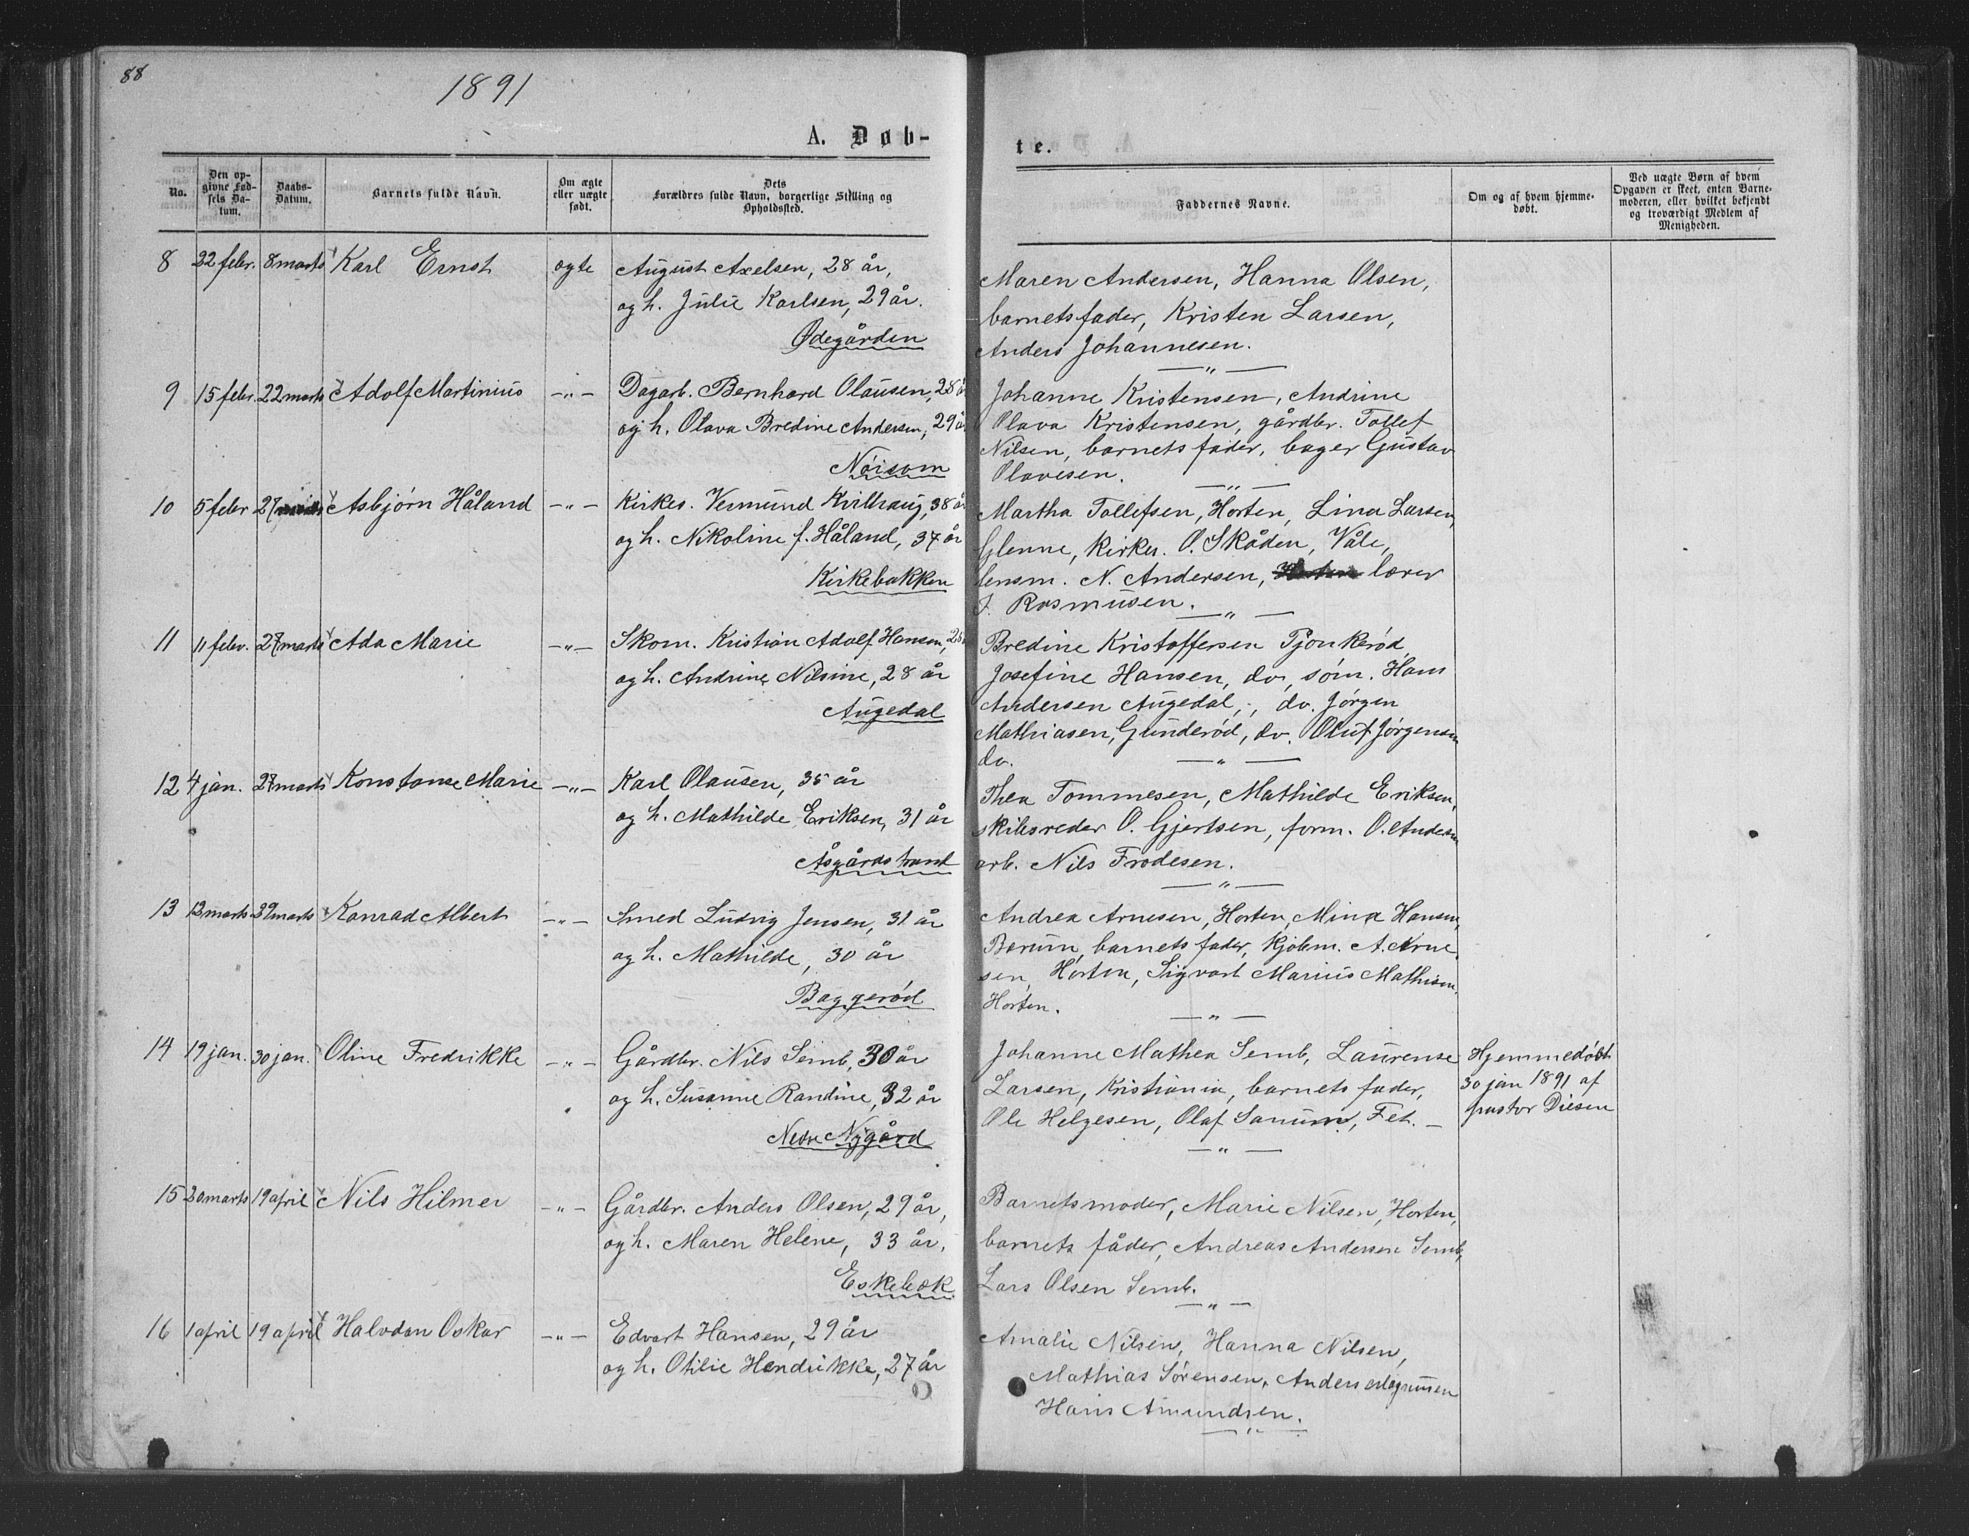 88
1891
A. Døb-
No.
Den opgivne Fødsels Datum.
Daabs-Datum.
Barnets fulde Navn.
Om ægte eller uægte født.
Dets Forældres fulde Navn, borgerlige Stilling og Opholdssted.
8 22 febr. 8 marts Karl Ernst ægte August Axelsen, 28 år,
og h. Julie Karlsen, 29 år.
Ødegården
9 15 febr. 22 marts Adolf Martinius -"- Dagarb. Bernhard Olausen, 28 å
og h. Olava Bredine Andersen, 29 å
Nöisom
10 5 febr 27 Asbjørn Håland -"- Kirkes. Vermund Kvilhaug, 38 å
og h. Nikoline f. Håland, 37 år
Kirkebakken
11 11 febr. 27 marts Ada Marie -"- Skom. Kristian Adolf Hansen,
og h. Andrine Nilsine, 28 år
Augedal
12 4 jan. 27 marts Konstanse Marie -"- Karl Olausen, 35 år
og h. Mathilde Eriksen, 31 år
Åsgårdstrand
13 12 marts 29 marts Konrad Albert -"- Smed Ludvig Jensen, 31 år
og h. Mathilde, 30 år
Baggerød
14 19 jan. 30 jan. Oline Fredrikke -"- Gårdbr. Nils Semb, 30 år
og h. Susanne Randine, 32 år
Nedre Nygård
15 20 marts 19 april Nils Hilmer -"- Gårdbr. Anders Olsen, 29 år,
og h. Maren Helene, 33 år.
Eskebæk
16 1 april 19 april Halvdan Oskar -"- Edvart Hansen, 29 år
og h. Otilie Hendrikke, 27 år
te.
Faddernes Navne.
Om og af hvem hjemmedøbt.
Ved uægte Børn af hvem Opgaven er skeet, enten Barnemoderen, eller hvilket bekjendt og troværdigt Medlem af Menigheden.
Maren Andersen, Hanna Olsen,
barnets fader, Kristen Larsen,
Anders Johannesen.
-"-
Johanne Kristensen, Andrine
Olava Kristensen, gårdbr. Tollef
Nilsen, barnets fader, bager Gustav
Olavesen.
-"-
Martha Tollefsen, Horten, Lina Larsen,
Glenne, kirkes. O. Skåden, Våle,
lensm. N. Andersen, lærer
J. Rasmusen.
-"-
Bredine Kristoffersen Pjonkerød,
Josefine Hansen, do, söm. Hans
Andersen Augedal, do. Jørgen
Mathiasen, Gunderød, do. Oluf Jørgensen
do.
-"-
Thea Tommesen, Mathilde Eriksen,
skibsreder O. Gjertsen, form. O. Andersen
arb. Nils Frodesen.
-"-
Andrea Arnesen, Horten, Mina Hansen,
Berum, barnets fader, kjøbm. A. Arne
sen, Horten, Sigvart Marius Mathisen,
Horten.
-"-
Johanne Mathea Semb, Laurense
Larsen, Kristiania, barnets fader,
Ole Helgesen, Olaf Sanum, Fet. -
-"-
Hjemmedøbt
30 jan 1891 af
pastor Diesen
Barnets moder, Marie Nilsen, Horten,
barnets fåder, Andreas Andersen Semb,
Lars Olsen Semb.
-"-
Amalie Nilsen, Hanna Nilsen,
Mathias Sørensen, Anders
Hans Amundsen.
-"-